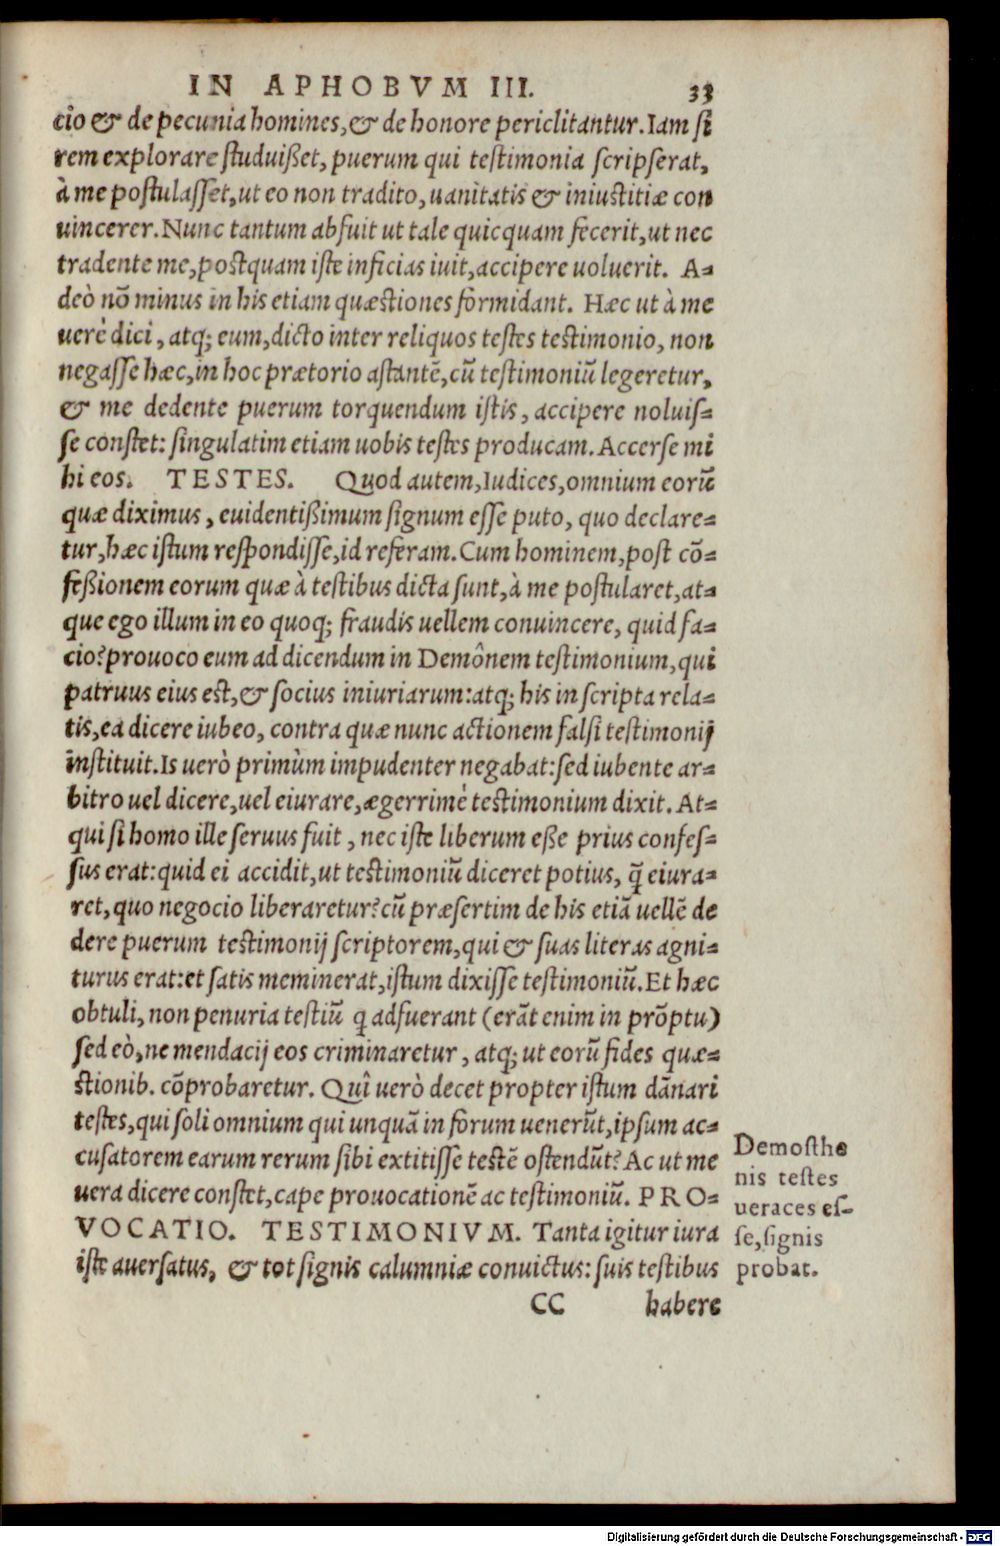 IN APHOBVM III. 33
cio & de pecunia homines, & de honore periclitantur. Iam si
rem explorare studuißet, puerum qui testimonia scripserat,
à me postulasset, ut eo non tradito, uanitatis & iniustitiæ con
uincerer. Nunc tantum abfuit ut tale quicquam fecerit, ut nec
tradente me, postquam iste inficias iuit, accipere uoluerit. A-
deò nō minus in his etiam quæstiones formidant. Hæc ut à me
uerè dici, atq; eum, dicto inter reliquos testes testimonio, non
negasse hæc, in hoc prætorio astantē, cū testimoniū legeretur,
& me dedente puerum torquendum istis, accipere noluis-
se constet: singulatim etiam uobis testes producam. Accerse mi
hi eos. TESTES. Quod autem, Iudices, omnium eorū
quæ diximus, euidentißimum signum esse puto, quo declare-
tur, hæc istum respondisse, id referam. Cum hominem, post cō-
feßionem eorum quæ à testibus dicta sunt, à me postularet, at-
que ego illum in eo quoq; fraudis uellem conuincere, quid fa-
cio? prouoco eum ad dicendum in Demônem testimonium, qui
patruus eius est, & socius iniuriarum: atq; his in scripta rela-
tis, ea dicere iubeo, contra quæ nunc actionem falsi testimonij
instituit. Is uerò primùm impudenter negabat: sed iubente ar-
bitro uel dicere, uel eiurare, ægerrimè testimonium dixit. At-
qui si homo ille seruus fuit, nec iste liberum eße prius confes-
sus erat: quid ei accidit, ut testimoniū diceret potius, q̄ eiura-
ret, quo negocio liberaretur? cū præsertim de his etiā uellē de
dere puerum testimonij scriptorem, qui & suas literas agni-
turus erat: et satis meminerat, istum dixisse testimoniū. Et hæc
obtuli, non penuria testiū q adfuerant (erāt enim in prōptu)
sed eò, ne mendacij eos criminaretur, atq; ut eorū fides quæ-
stionib. cōprobaretur. Quî uerò decet propter istum dānari
testes, qui soli omnium qui unquā in forum uenerūt, ipsum ac-
cusatorem earum rerum sibi extitisse testē ostendūt? Ac ut me
uera dicere constet, cape prouocationē ac testimoniū. PRO-
VOCATIO. TESTIMONIVM. Tanta igitur iura
iste auersatus, & tot signis calumniæ conuictus: suis testibus
CC habere
Demosthe
nis testes
ueraces es-
se, signis
probat.
Digitalisierung gefördert durch die Deutsche Forschungsgemeinschaft - DFG